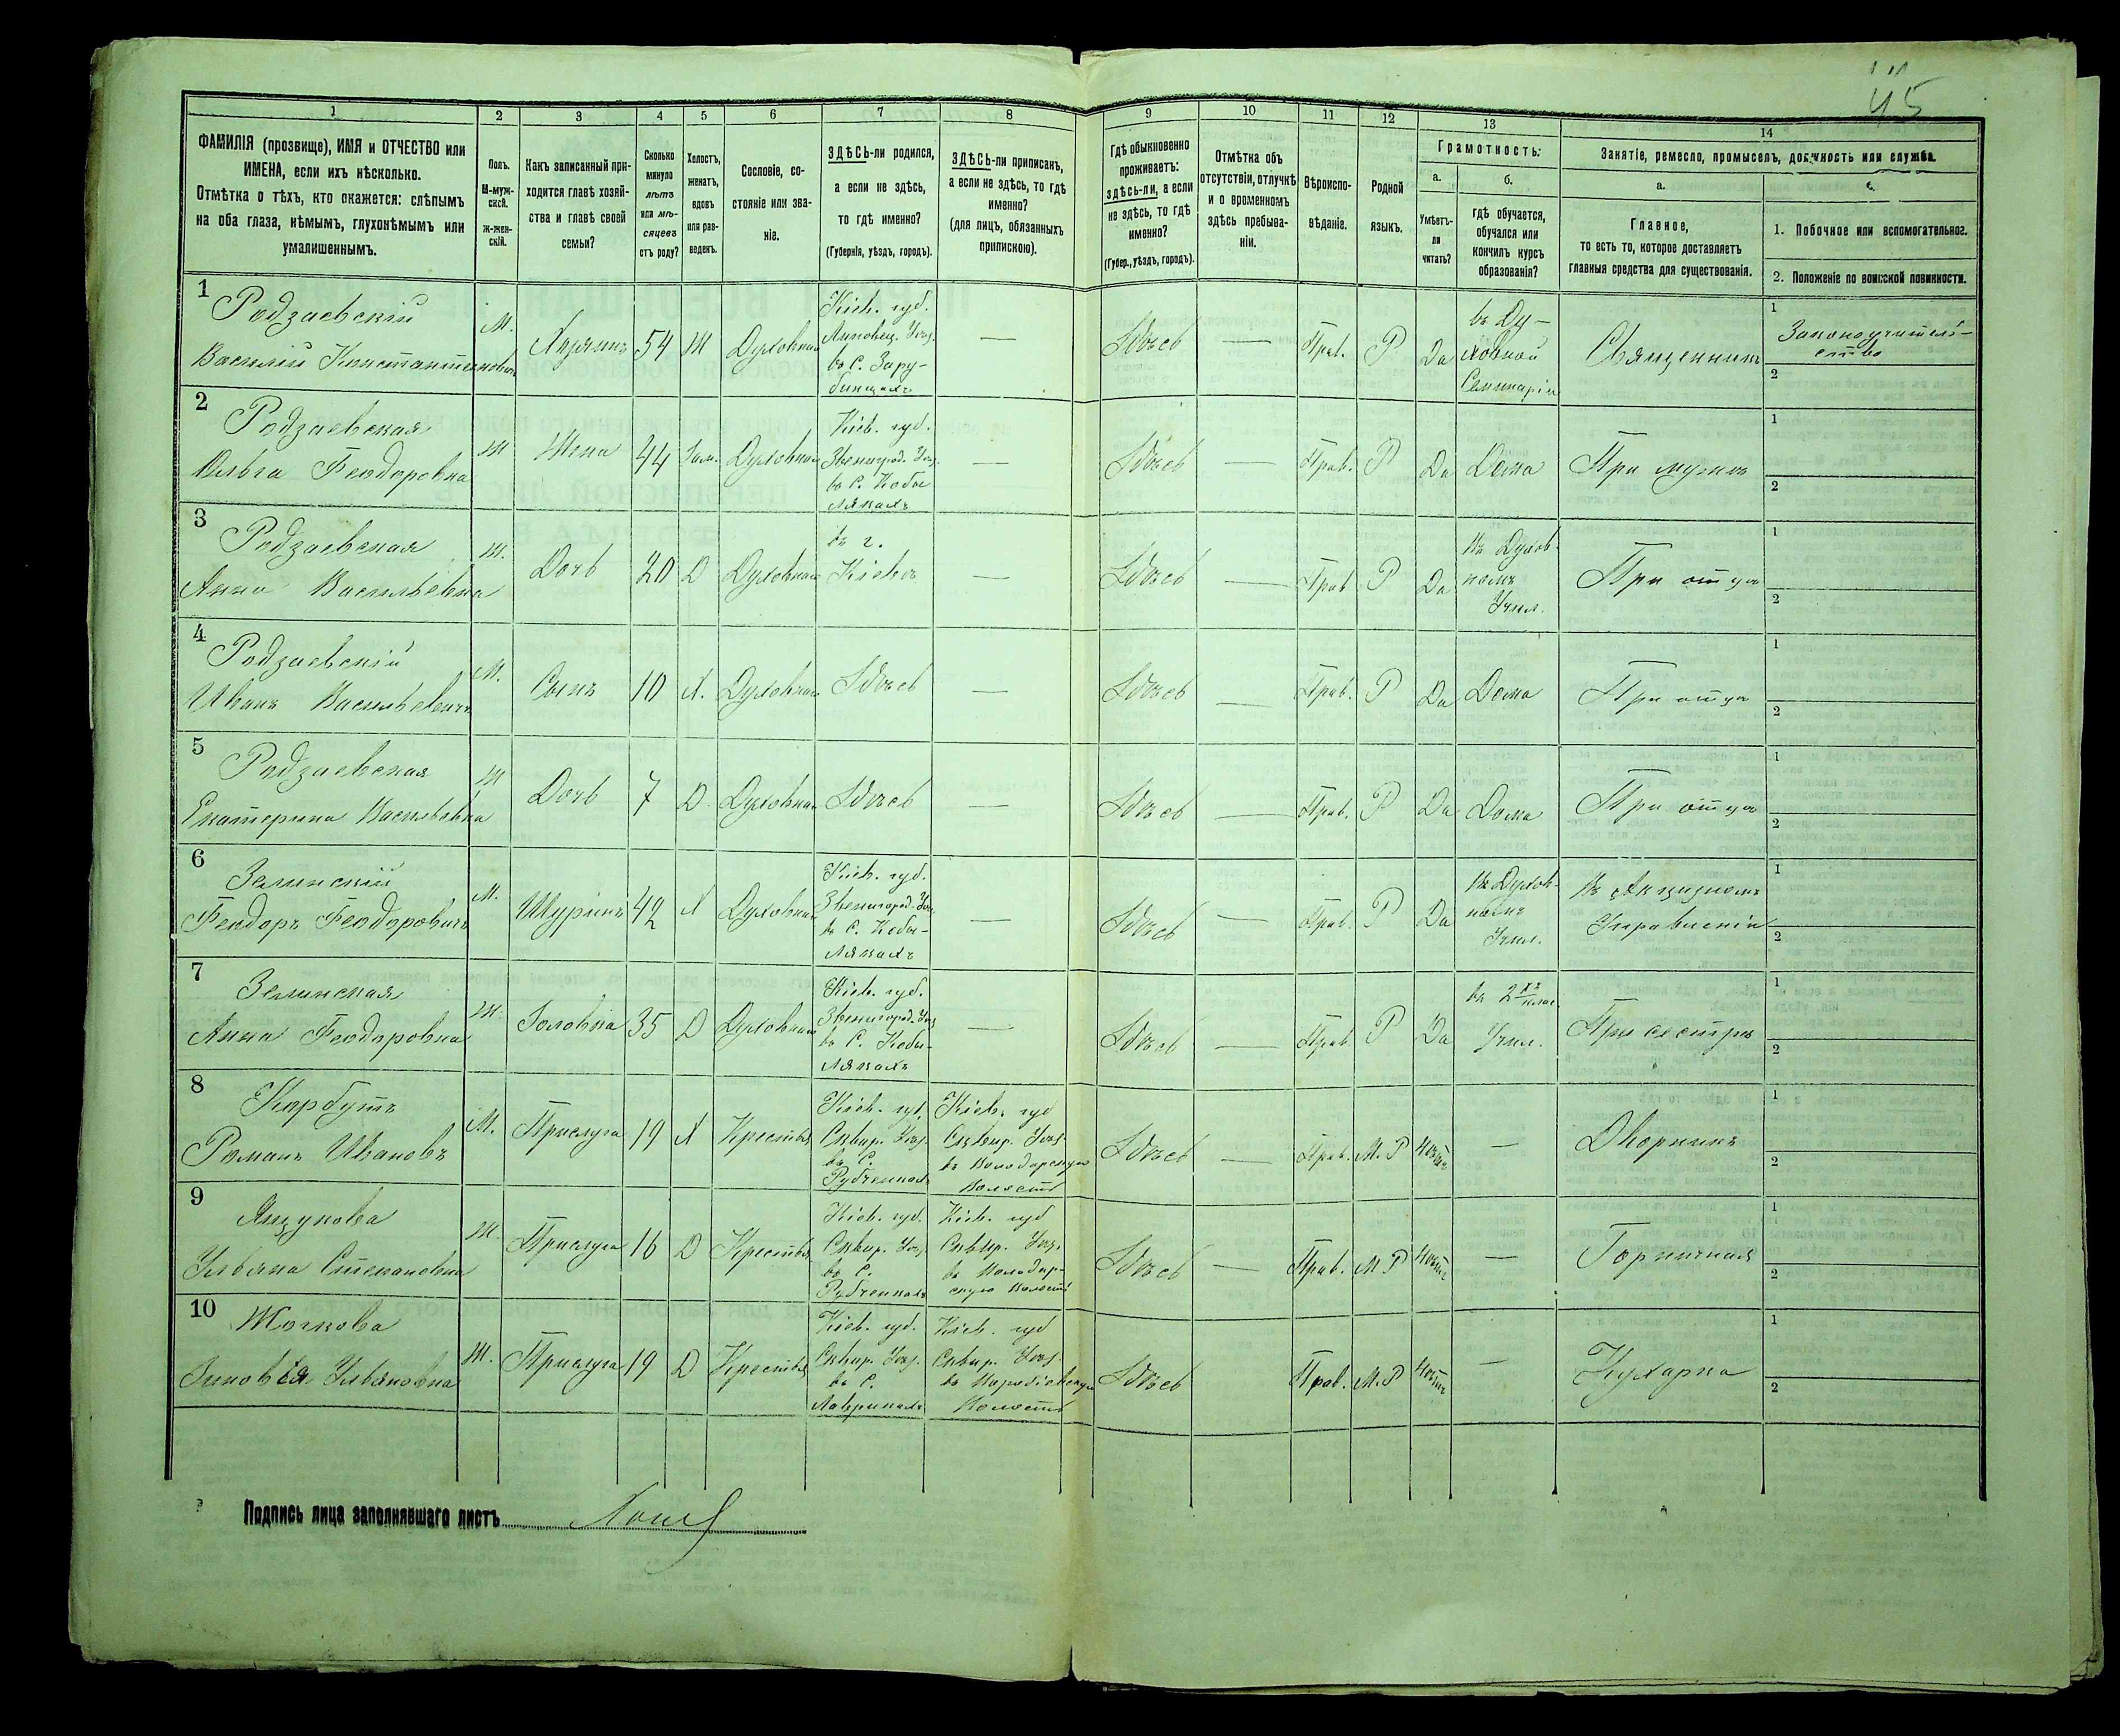 45
1 2 3 4 5 6 7 8 9 10 11 12 13 14
ФАМИЛІЯ (прозвище), ИМЯ и ОТЧЕСТВО или
ИМЕНА, если ихъ нѣсколько.
Отмѣтка о тѣхъ, кто окажется: слѣпымъ
на оба глаза, нѣмымъ, глухонѣмымъ или
умалишеннымъ.
Полъ.
М-муж-
ской.
Ж-жен-
скій.
Какъ записанный при-
ходится главѣ хозяй-
ства и главѣ своей
семьи?
Сколько
минуло
лѣтъ
или мѣ-
сяцевъ
отъ роду?
Холостъ,
женатъ,
вдовъ
или раз-
веденъ.
Сословіе, со-
стояніе или зва-
ніе.
ЗДѢСЬ-ли родился,
а если не здѣсь,
то гдѣ именно?
(Губернія, уѣздъ, городъ).
ЗДѢСЬ-ли приписанъ,
а если не здѣсь, то гдѣ
именно?
(для лицъ, обязанныхъ
припискою).
Гдѣ обыкновенно
проживаетъ:
ЗДѢСЬ-ли, а если
не здѣсь, то гдѣ
именно?
(Губер., уѣздъ, городъ).
Отмѣтка объ
отсутствіи, отлучкѣ
и о временномъ
здѣсь пребыва-
ніи.
Вѣроиспо-
вѣданіе.
Родной
языкъ.
Грамотность:
а.
Умѣетъ-
ли
читать?
б.
гдѣ обучается,
обучался или
кончилъ курсъ
образованія?
Занятіе, ремесло, промыселъ, должность или служба.
а.
Главное,
то есть то, которое доставляетъ
главныя средства для существованія.
б.
1. Побочное или вспомогательное.
2. Положеніе по воинской повинности.
1
Родзаевскій
Василій Константиновичъ
М.
Хозяинъ
54
Ж
Духовная
Кіев. губ.
Липовец. Уѣз.
въ С. Зару-
бинцахъ
—
Здѣсь
—
Прав.
Р
Да
въ Ду-
ховной
Семинаріи
Священникъ
1
Законоучитель-
ство
2
2
Родзаевская
Ольга Феодоровна
Ж
Жена
44
Зам.
Духовная
Кіев. губ.
Звенигород. Уѣз.
въ С. Кобы-
лякахъ
—
Здѣсь
—
Прав.
Р
Да
Дома
При мужѣ
1
2
3
Родзаевская
Анна Васильевна
Ж.
Дочь
20
Д
Духовная
въ г.
Кіевѣ
—
Здѣсь
—
Прав
Р
Да
Въ Духов-
номъ
Учил.
При отцѣ
1
2
4
Родзаевскій
Иванъ Васильевичъ
М.
Сынъ
10
Х.
Духовная
Здѣсь
—
Здѣсь
—
Прав.
Р
Да
Дома
При отцѣ
1
2
5
Родзаевская
Екатерина Васильевна
Ж
Дочь
7
Д.
Духовная
Здѣсь
—
Здѣсь
—
Прав.
Р
Да
Дома
При отцѣ
1
2
6
Зелинскій
Феодоръ Феодоровичъ
М.
Шуринъ
42
Х
Духовная
Кіев. губ.
Звенигород. Уѣз.
въ С. Кобы-
лякахъ
—
Здѣсь
—
Прав.
Р
Да
Въ Духов-
номъ
Учил.
Въ Акцизномъ
Управленіи
1
2
7
Зелинская
Анна Феодоровна
Ж.
Золовка
35
Д
Духовная
Кіев. губ.
Звенигород. Уѣз.
въ С. Кобы-
лякахъ
—
Здѣсь
—
Прав
Р
Да
въ 2 хъ клас.
Учил.
При сестрѣ
1
2
8
Корбутъ
Романъ Ивановъ
М.
Прислуга
19
Х
Крестья
Кіев. губ.
Сквир. Уѣз.
въ С.
Рубченкахъ
Кіев. губ
Сквир. Уѣз.
въ Володарскую
Волость
Здѣсь
—
Прав.
М. Р
Нѣтъ
—
Дворникъ
1
2
9
Янчукова
Ульяна Степановна
Ж.
Прислуга
16
Д
Крестья
Кіев. губ.
Сквир. Уѣз.
въ С.
Рубченкахъ
Кіев. губ
Сквир. Уѣз.
въ Володар-
скую Волость
Здѣсь
—
Прав.
М. Р
Нѣтъ
—
Горничная
1
2
10
Зиновія Ульяновна
Ж.
Прислуга
19
Д
Крестья
Кіев. губ.
Сквир. Уѣз.
въ С.
Лавринахъ
Кіев. губ
Сквир. Уѣз.
Волость
Здѣсь
Прав.
М. Р
Нѣтъ
—
Кухарка
1
2
Подпись лица заполнявшаго листъ